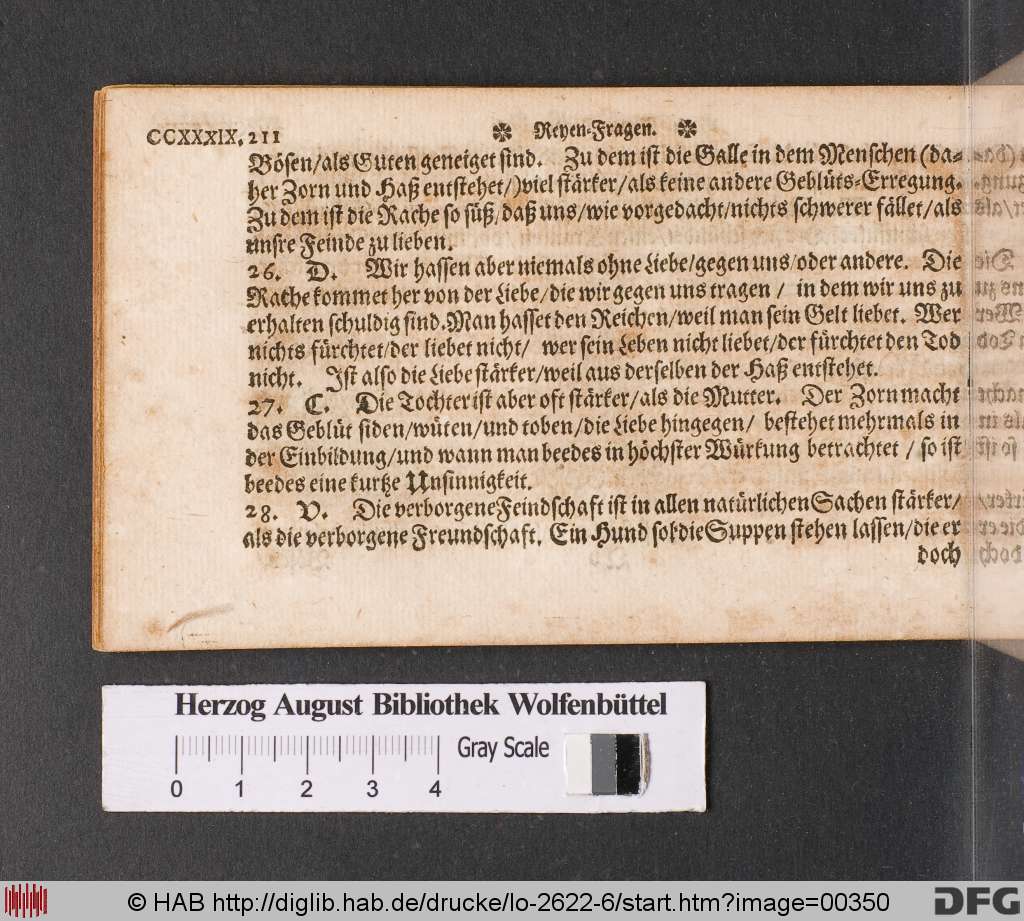 CCXXXIX, 211 ✽ Reyen-Fragen. ✽
Bösen/als Guten geneiget sind. Zu dem ist die Galle in dem Menschen (da-
her Zorn und Haß entstehet/) viel stärker/als keine andere Geblüts-Erregung.
Zu dem ist die Rache so süß/daß uns/wie vorgedacht/nichts schwerer fället/als
unsre Feinde zu lieben.
26. D. Wir hassen aber niemals ohne Liebe/gegen uns/oder andere. Die
Rache kommet her von der Liebe/die wir gegen uns tragen / in dem wir uns zu
erhalten schuldig sind. Man hasset den Reichen/weil man sein Gelt liebet. Wer
nichts fürchtet/der liebet nicht/ wer sein Leben nicht liebet/der fürchtet den Tod
nicht. Ist also die Liebe stärker/weil aus derselben der Haß entstehet.
27. C. Die Tochter ist aber oft stärker/als die Mutter. Der Zorn macht
das Geblüt siden/wüten/und toben/die Liebe hingegen/ bestehet mehrmals in
der Einbildung/und wann man beedes in höchster Würkung betrachtet / so ist
beedes eine kurtze Unsinnigkeit.
28. V. Die verborgene Feindschaft ist in allen natürlichen Sachen stärker/
als die verborgene Freundschaft. Ein Hund sol die Suppen stehen lassen/die er
doch
Herzog August Bibliothek Wolfenbüttel
Gray Scale
0 1 2 3 4
© HAB http://diglib.hab.de/drucke/lo-2622-6/start.htm?image=00350
DFG